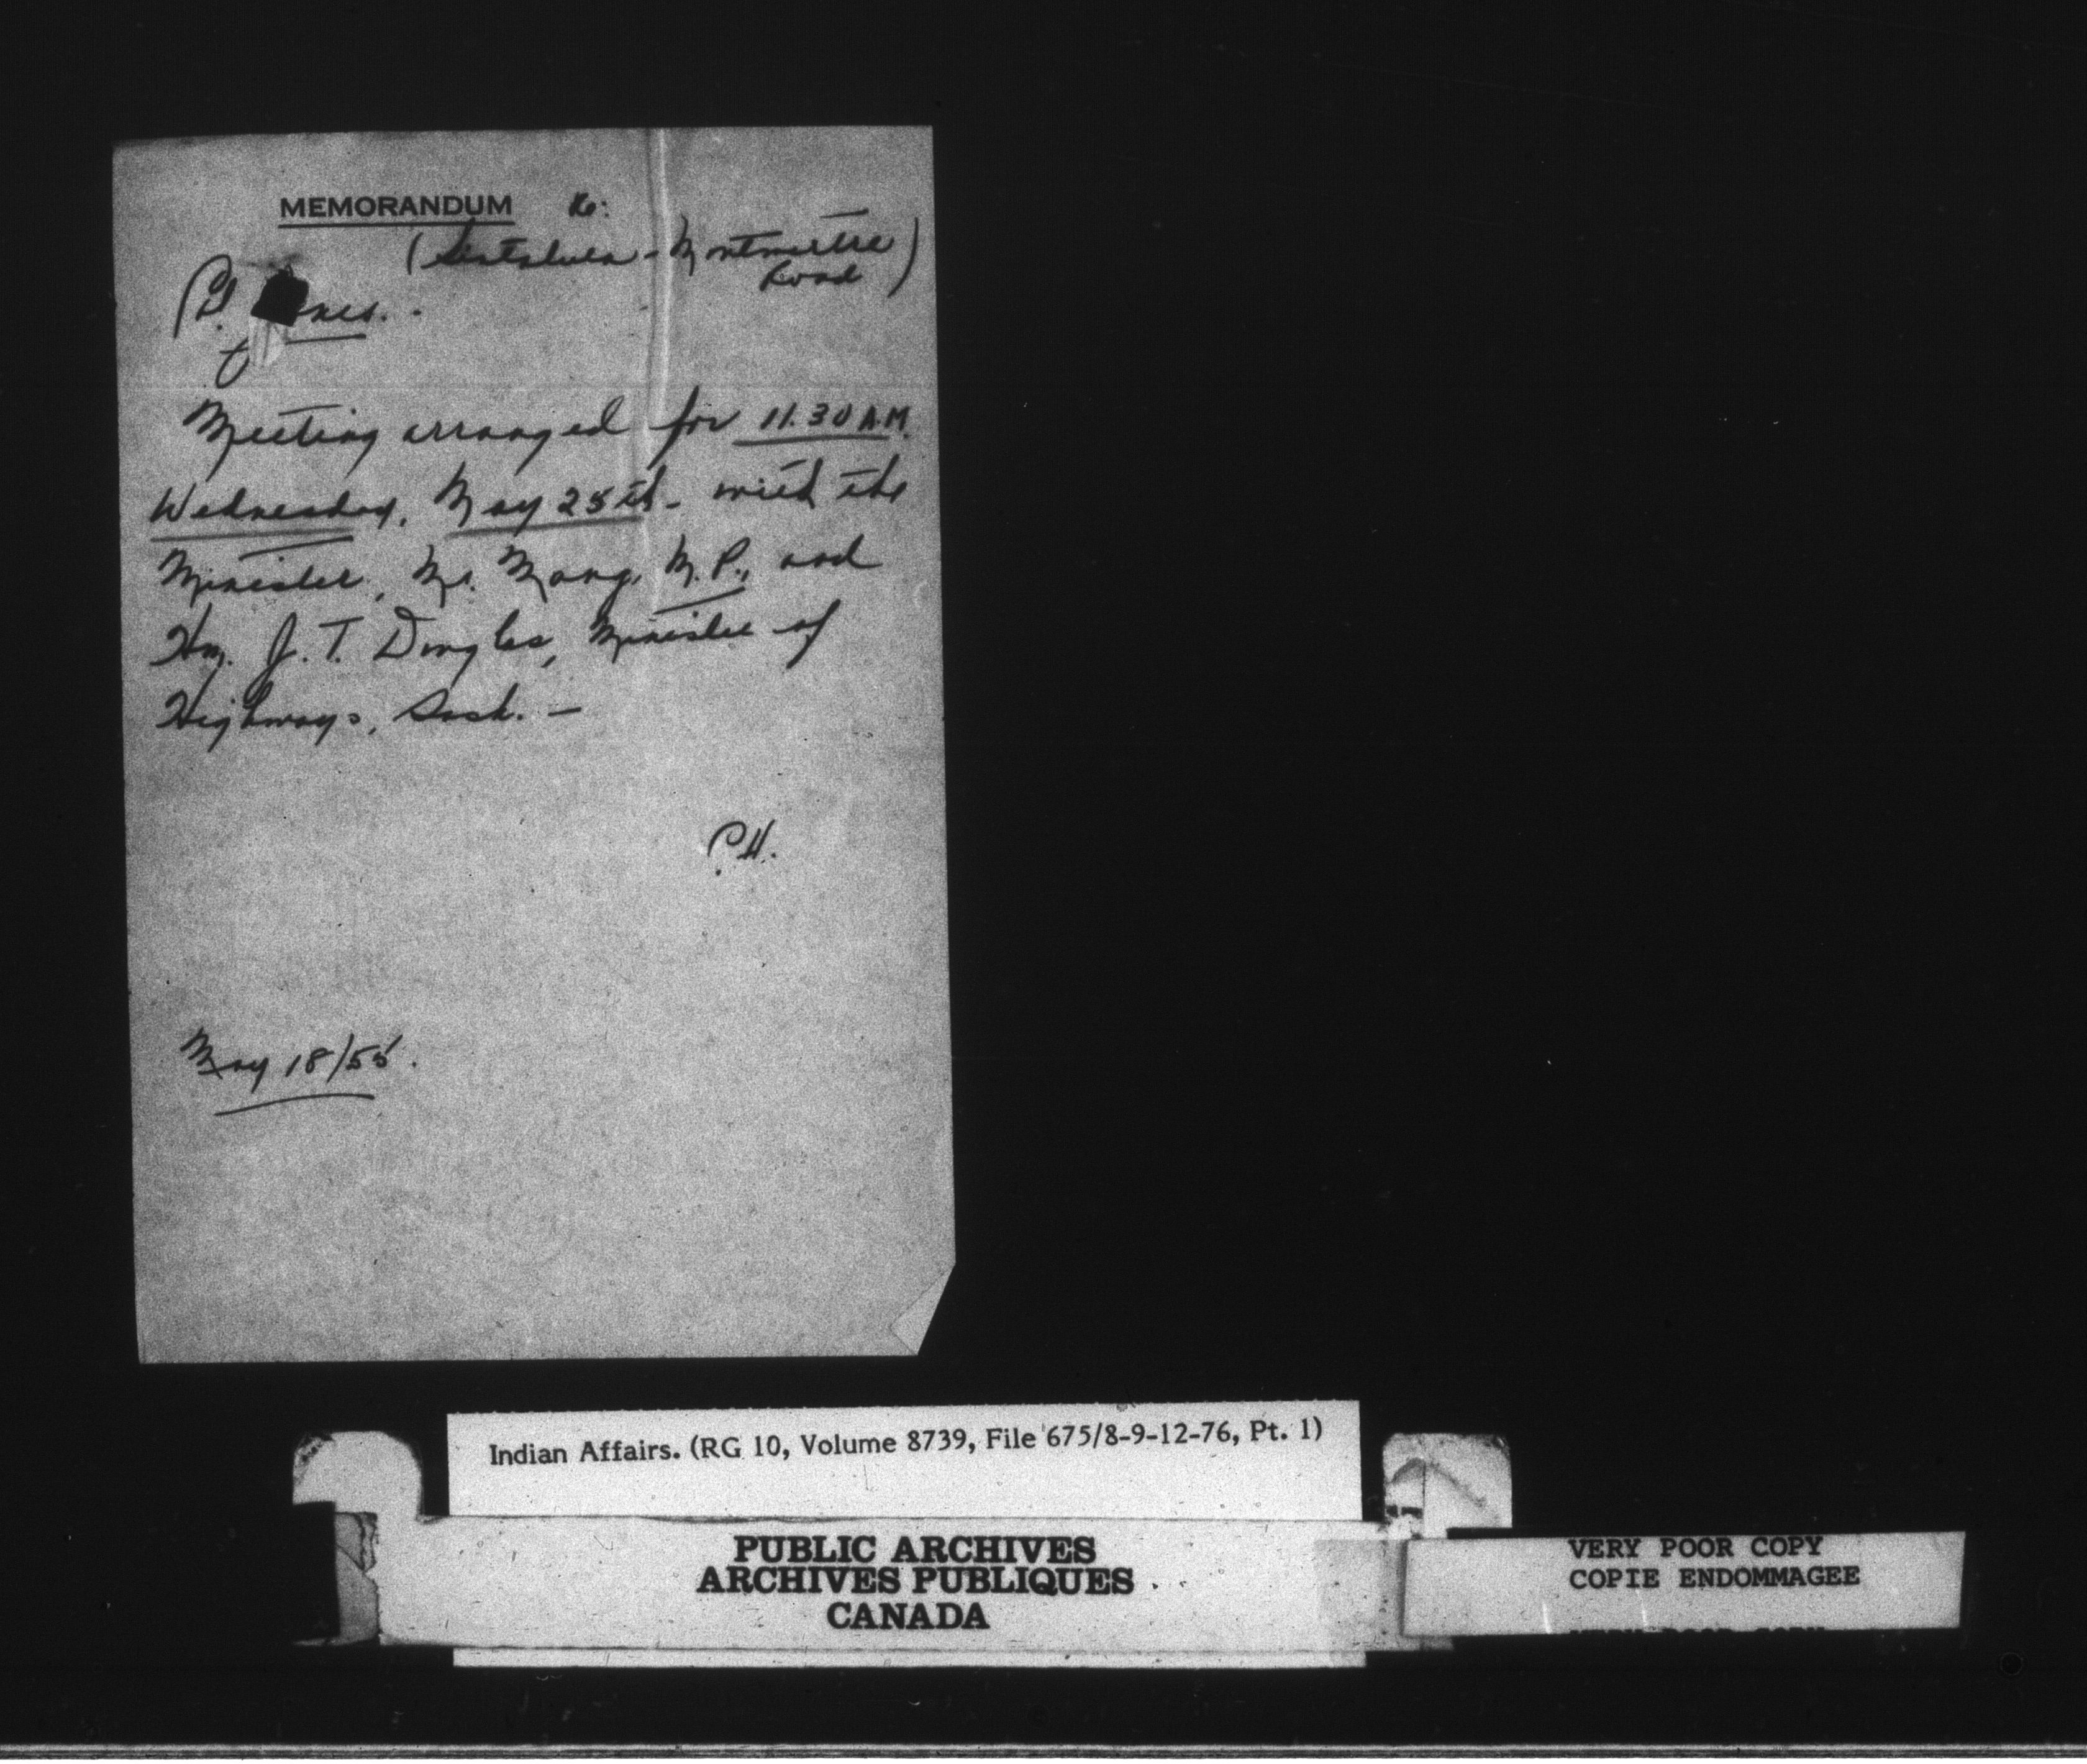 MEMORANDUM Re:
(Sintaluta - Montmartre
Road)
Meeting arranged for 11.30 A.M.
Wednesday, May 25th - with the
Minister, Mr. Mang, M.P., and
Hon. J. T. Douglas, Minister of
Highways, Sask. —
P.H.
May 18/55.
Indian Affairs. (RG 10, Volume 8739, File 675/8-9-12-76, Pt. 1)
PUBLIC ARCHIVES
ARCHIVES PUBLIQUES
CANADA
VERY POOR COPY
COPIE ENDOMMAGEE